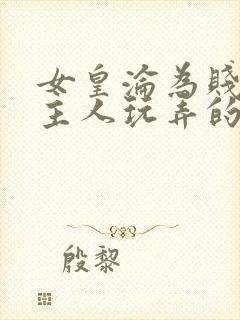 女皇淪為賤
主人玩弄的
殷黎